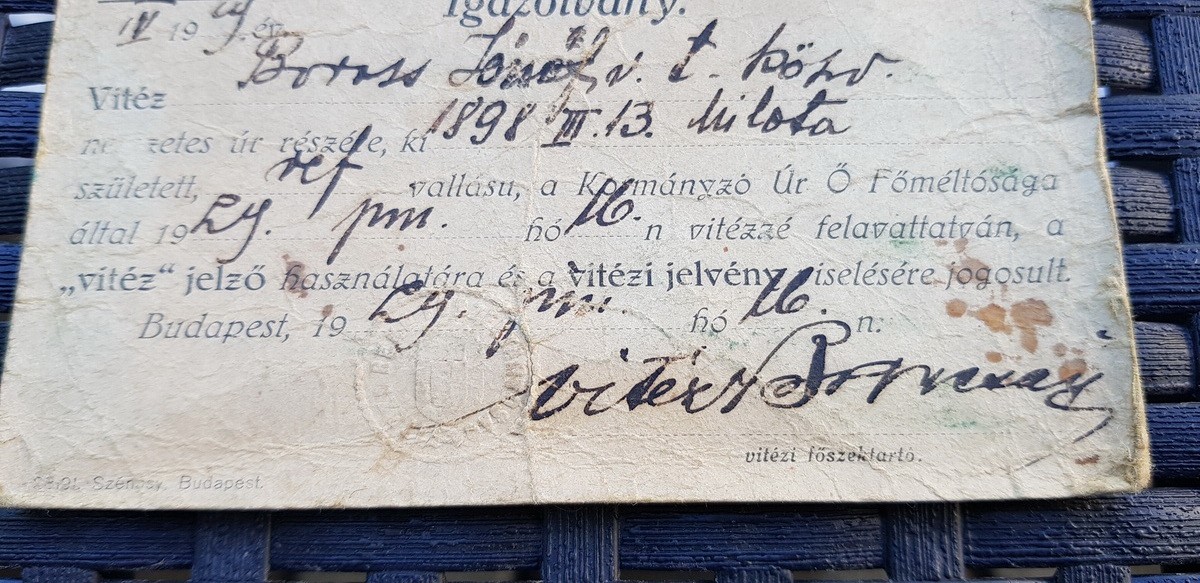 Igazolvány.
IV 1929. én.
Boross József v. t. közv.
Vitéz
nemzetes úr részére, ki 1898 III. 13. Milota
született, ref vallásu, a Kormányzó Úr Ő Főméltósága
által 1929. hó 16. n vitézzé felavattatván, a
„vitéz“ jelző használatára és a vitézi jelvény viselésére jogosult.
Budapest, 1929. hó 16. n:
vitéz
vitézi főszéktartó.
Budapest.